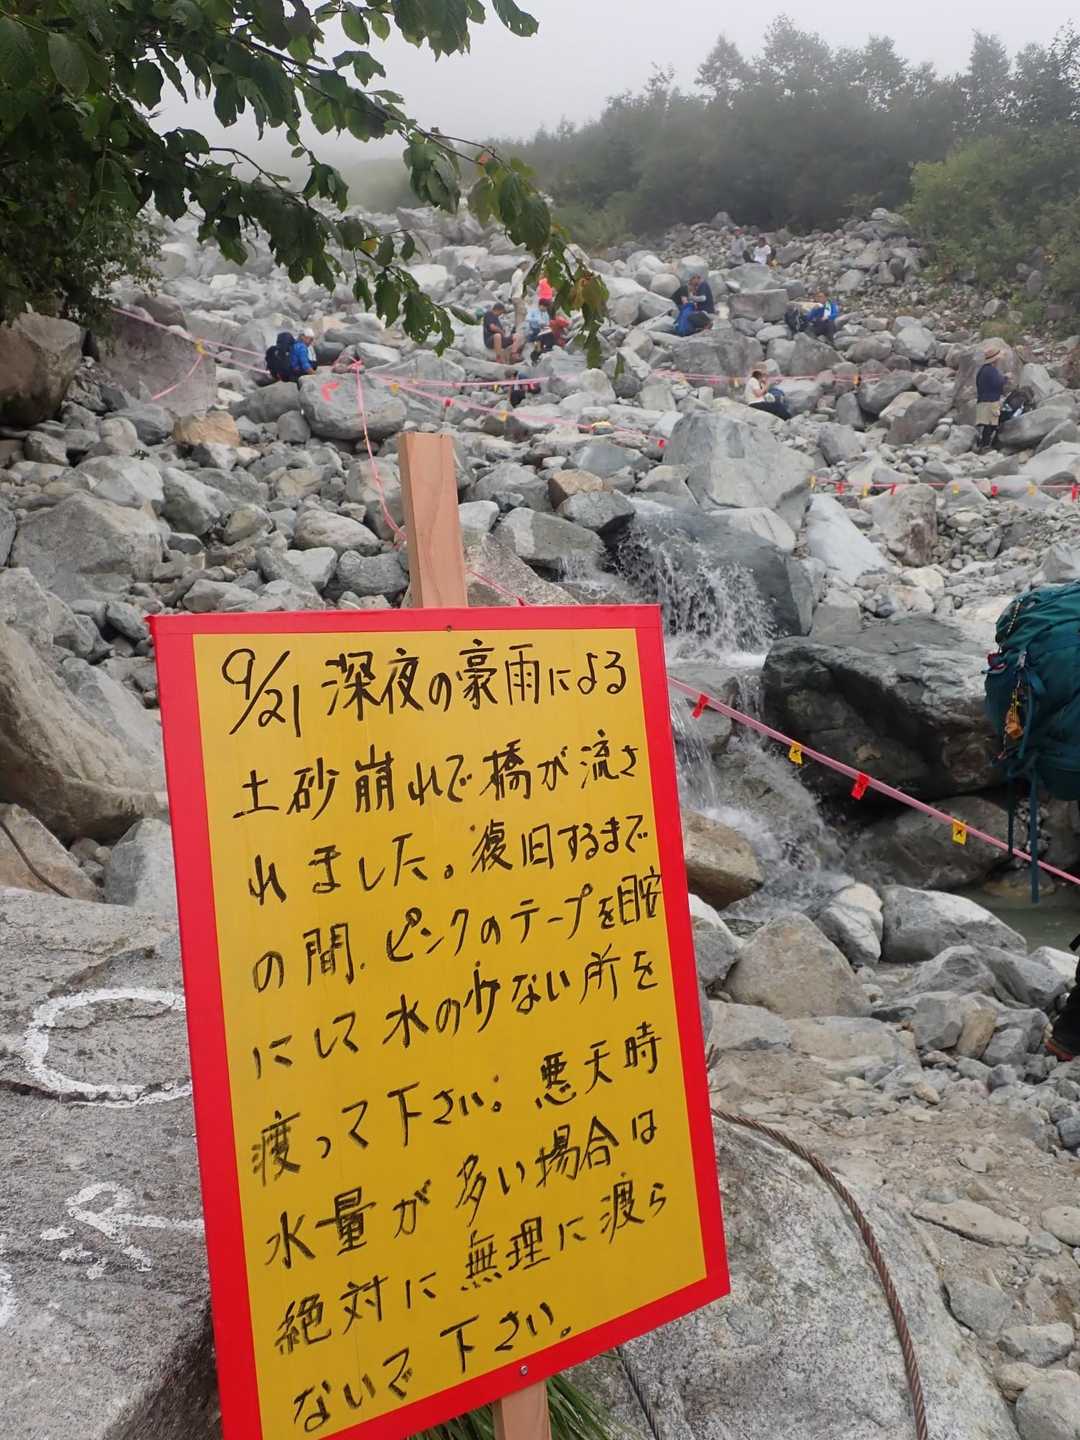 9/21 深夜の豪雨による
土砂崩れで橋が流さ
れました。復旧するまで
の間、ピンクのテープを目安
にして水の少ない所を
渡って下さい。悪天時
水量が多い場合は
絶対に無理に渡ら
ないで下さい。